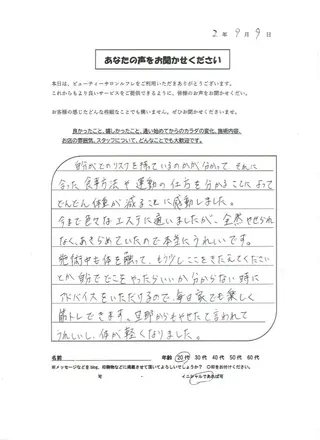 2年 9月 9日
あなたの声をお聞かせください
本日は、ビューティーサロンルフレをご利用いただきありがとうございます。
これからもより良いサービスをご提供できるように、皆様のお声をお聞かせください。
お客様の感じたどんな些細なことでも構いません。ぜひお聞かせくださいませ。
良かったこと、嬉しかったこと、通い始めてからのカラダの変化、施術内容、
お店の雰囲気、スタッフについて、どんなことでも大歓迎です。
自分がどのリスクを持っているのかが分かって それに
合った食事方法や運動の仕方を分かることによって
どんどん体重が減ることに感動しました。
今まで色々なエステに通いましたが、全然やせられ
なくあきらめていたので本当にうれしいです。
施術中も体を触って、もう少しここをきたえてください
とか自分でどこをやったらいいか分からない時に
アドバイスをいただけるので、毎日家でも楽しく
筋トレできます。旦那からもやせたと言われて
うれしいし、体が軽くなりました。
名前 年齢 20代 30代 40代 50代 60代
※メッセージなどを blog、印刷物などに掲載させて頂いてよろしいでしょうか? ○印をお付けください。
可 ・ イニシャルであれば可